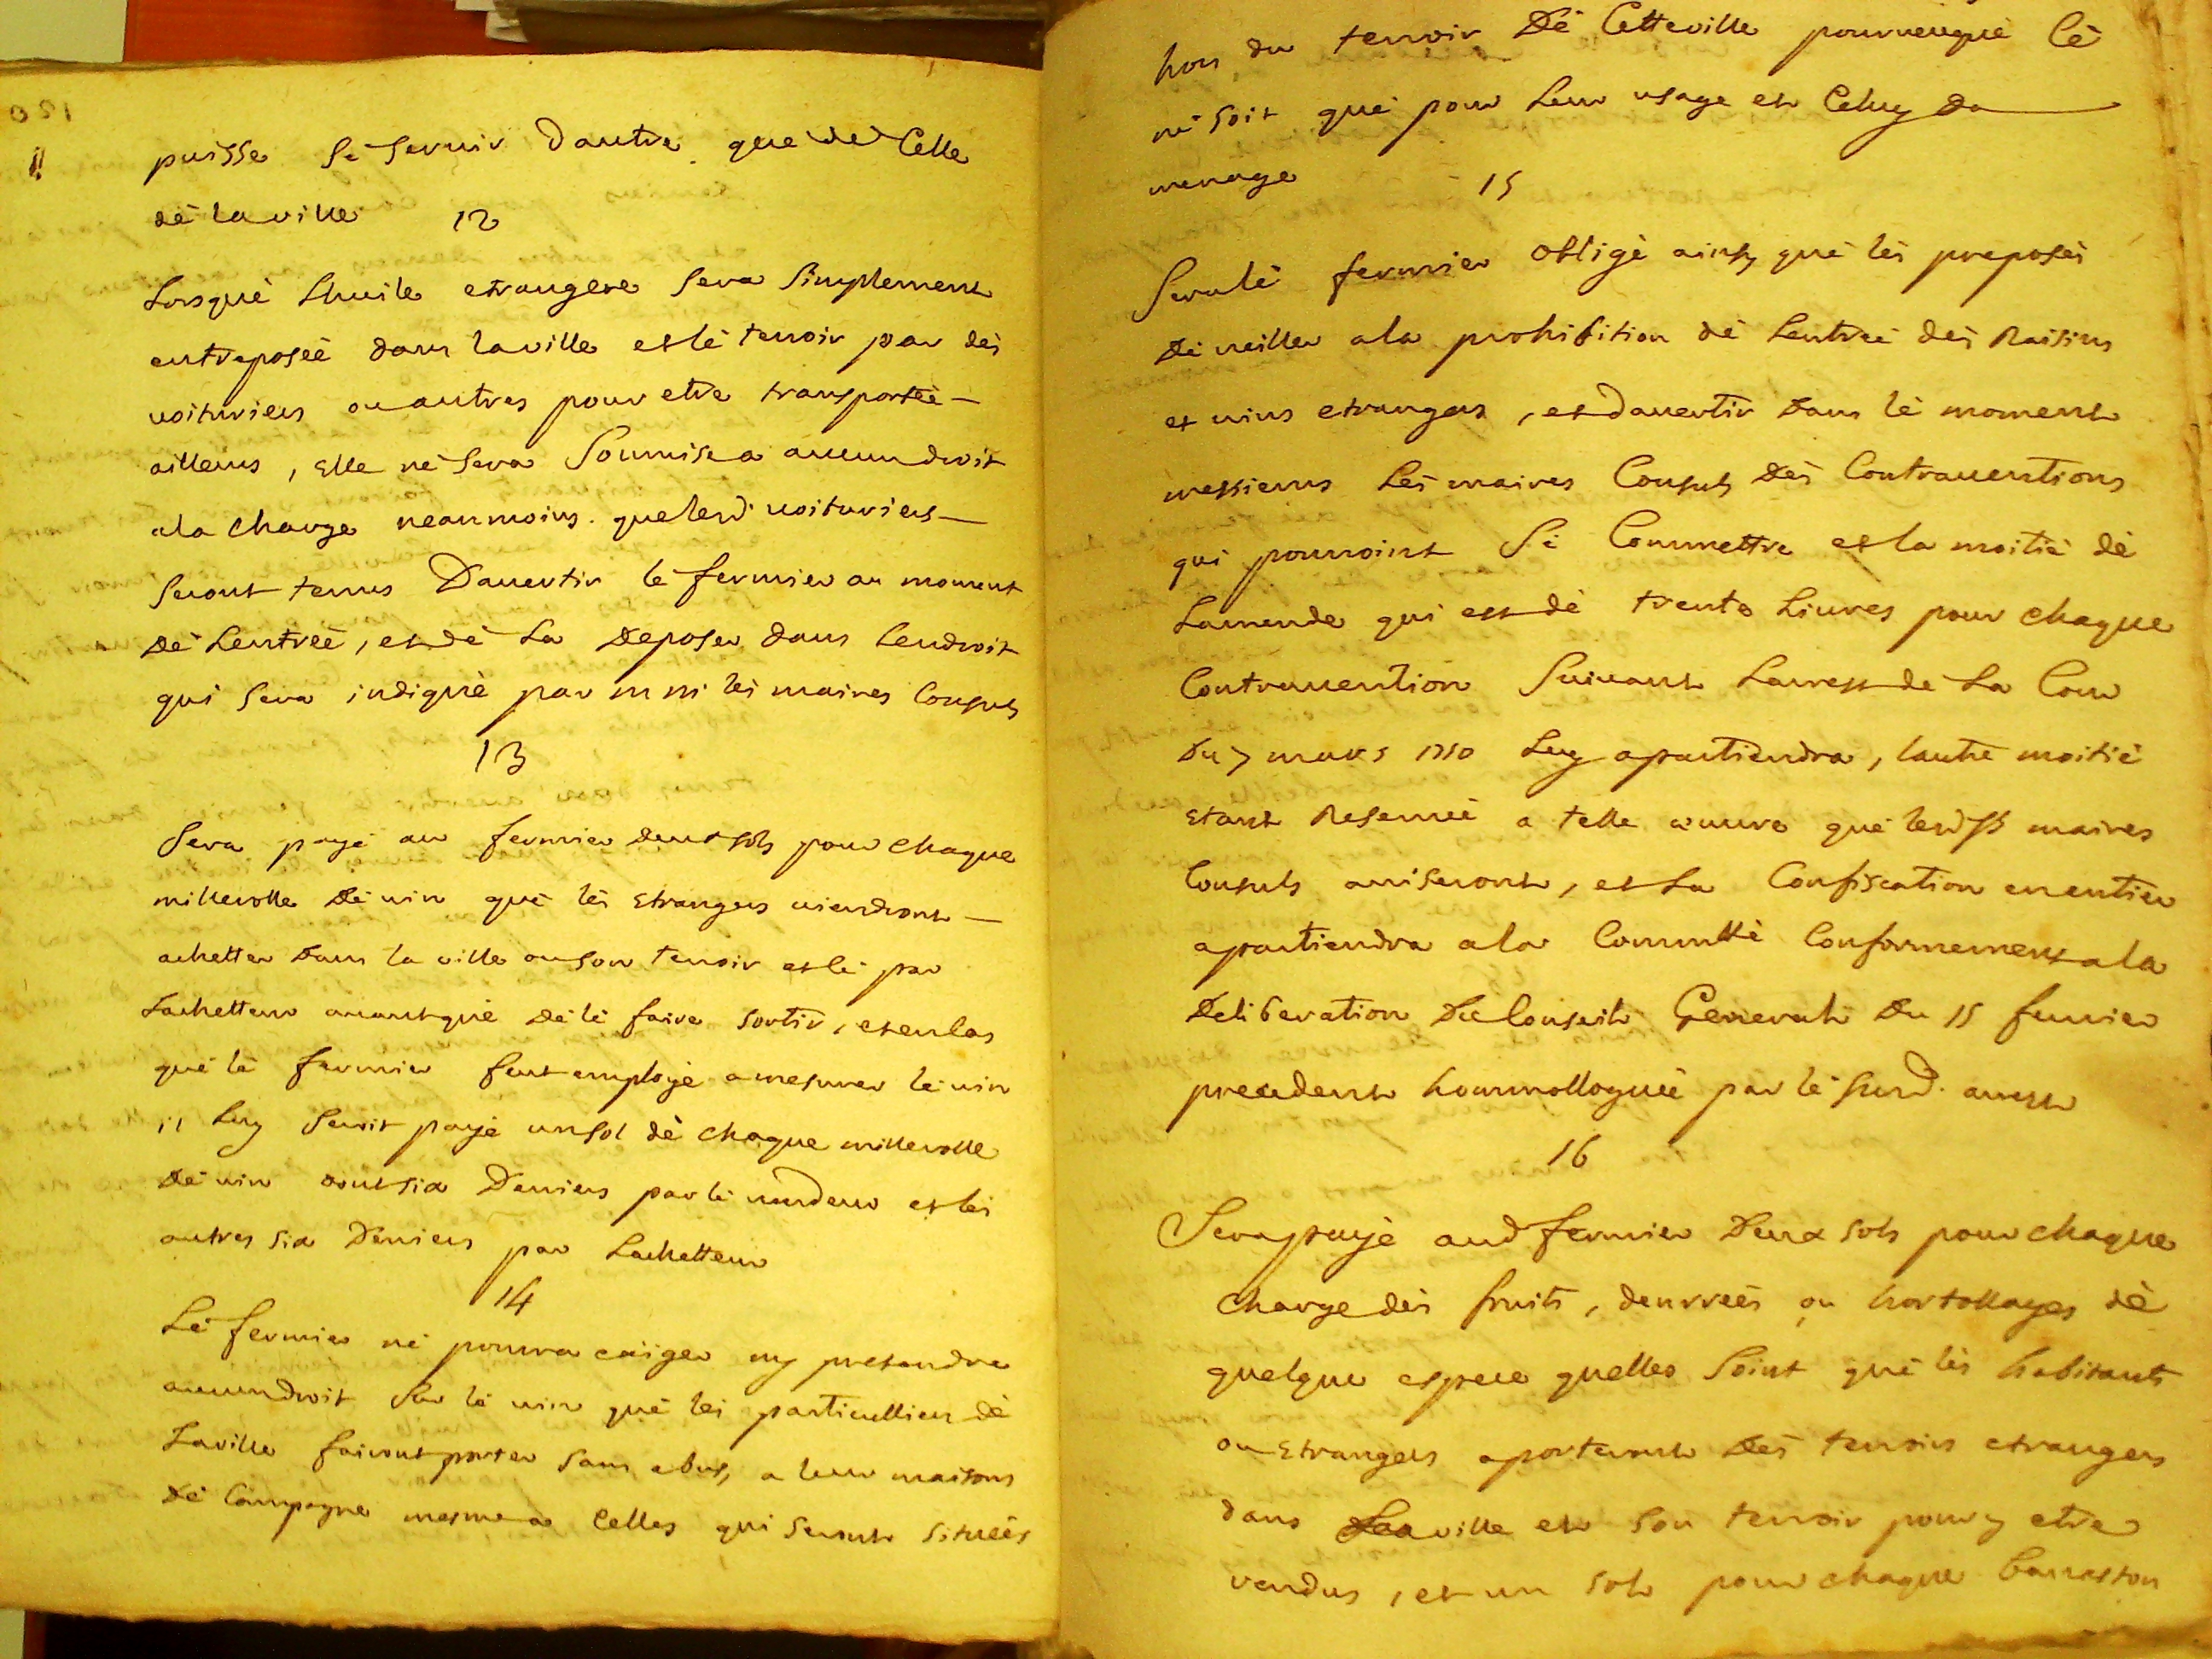 puisse sè servir dautre que de Celle
dè la ville
12
Lorsquè Lhuile etrangere sera simplement
entreposèè dans la ville et lè terroir par dès
voituriers ou autres pour etre transportèè
ailleurs, elle nè sera soumise a aucun droit
a la charge neanmoins que lesd. voituriers
seront tenus Davertir lè fermier au moment
Dè Lentrèè, et dè La deposer dans lendroit
qui sera indiquè par mm. lès maires Consuls
13
Sera payè au fermier deux sols pour chaque
millerolle dè vin què lès etrangers viendront
achetter dans la ville ou son terroir et lè par
Lachetteur avant què dè lè faire sortir, et en Cas
què lè fermier feut employè a mesurer lè vin
il Luy seroit payè un sol dè chaque millerolle
dè vin dont six deniers par lè vendeur et lès
autres six deniers par Lachetteur
14
Lè fermier nè pourra exiger ny pretandre
aucun droit sur lè vin què lès particulliers dè
La ville fairont porter sans abus, a leur maisons
dè Campagne mesme a Celles qui seront situèès
hors du terroir dè Cette ville pourveu què Cè
nè soit què pour Leur usage et Celuy du
menage
15
Sera lè fermier obligè ainsy què lès preposès
dè veiller a la prohibition dè Lentrèè dès Raisins
et vins etrangers, et davertir dans lè moment
messieurs Lès maires Consuls dès Contraventions
qui pourroint sè Commettre et la moitiè dè
Lamende qui est dè trente Livres pour chaque
Contravention suivant Larrest de La Cour
du 7 mars 1710 Luy apartiendra, lautre moitiè
etant Reservèè a telle œuvre què lesd. maires
Consuls aviseront, et La Confiscation en entier
apartiendra a la Commtè Conformement a la
Deliberation du Conseil General du 15 fevrier
precedent hommologuèè par lè susd. arrest
16
Sera payè aud fermier deux sols pour chaque
charge dès fruits, denrèès ou hortollages dè
quelque espece quelles soint què lès habitants
ou etrangers aporteront dès terroirs etrangers
dans La ville et son terroir pour y etre
vendus, et un sol pour chaque